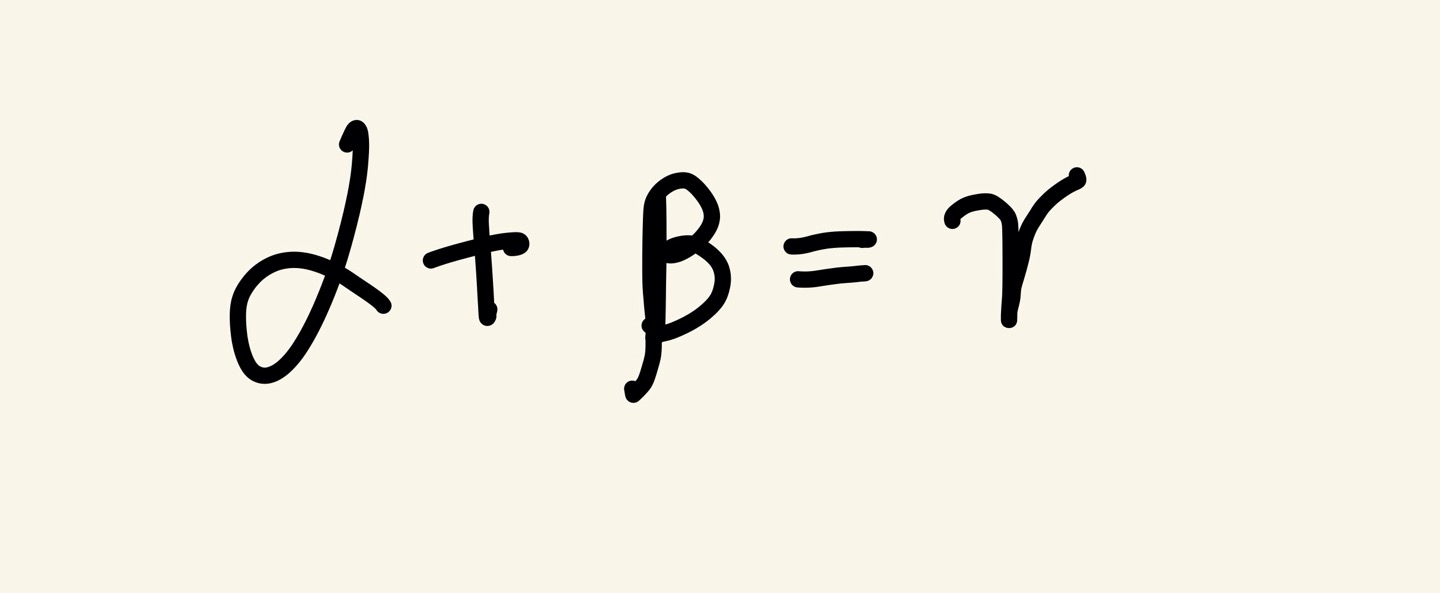 α + β = γ